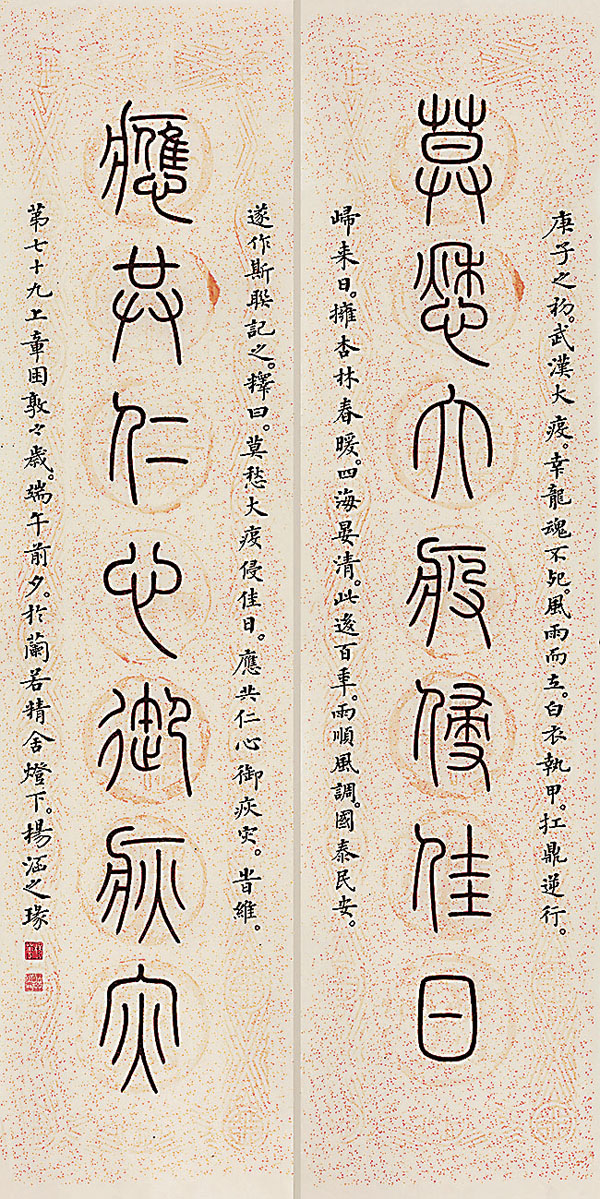 庚子之初。武漢大疫。幸龍魂不死。風雨而立。白衣執甲。扛鼎逆行。
莫愁大疫侵佳日
歸来日。擁杏林春暖。四海晏清。此後百年。雨順風調。國泰民安。
遂作斯聯記之。釋曰。莫愁大疫侵佳日。應共仁心御疢灾。旹維。
應共仁心御疢灾
第七十九上章困敦之歲。端午前夕。於蘭若精舍燈下。楊涵之瑑